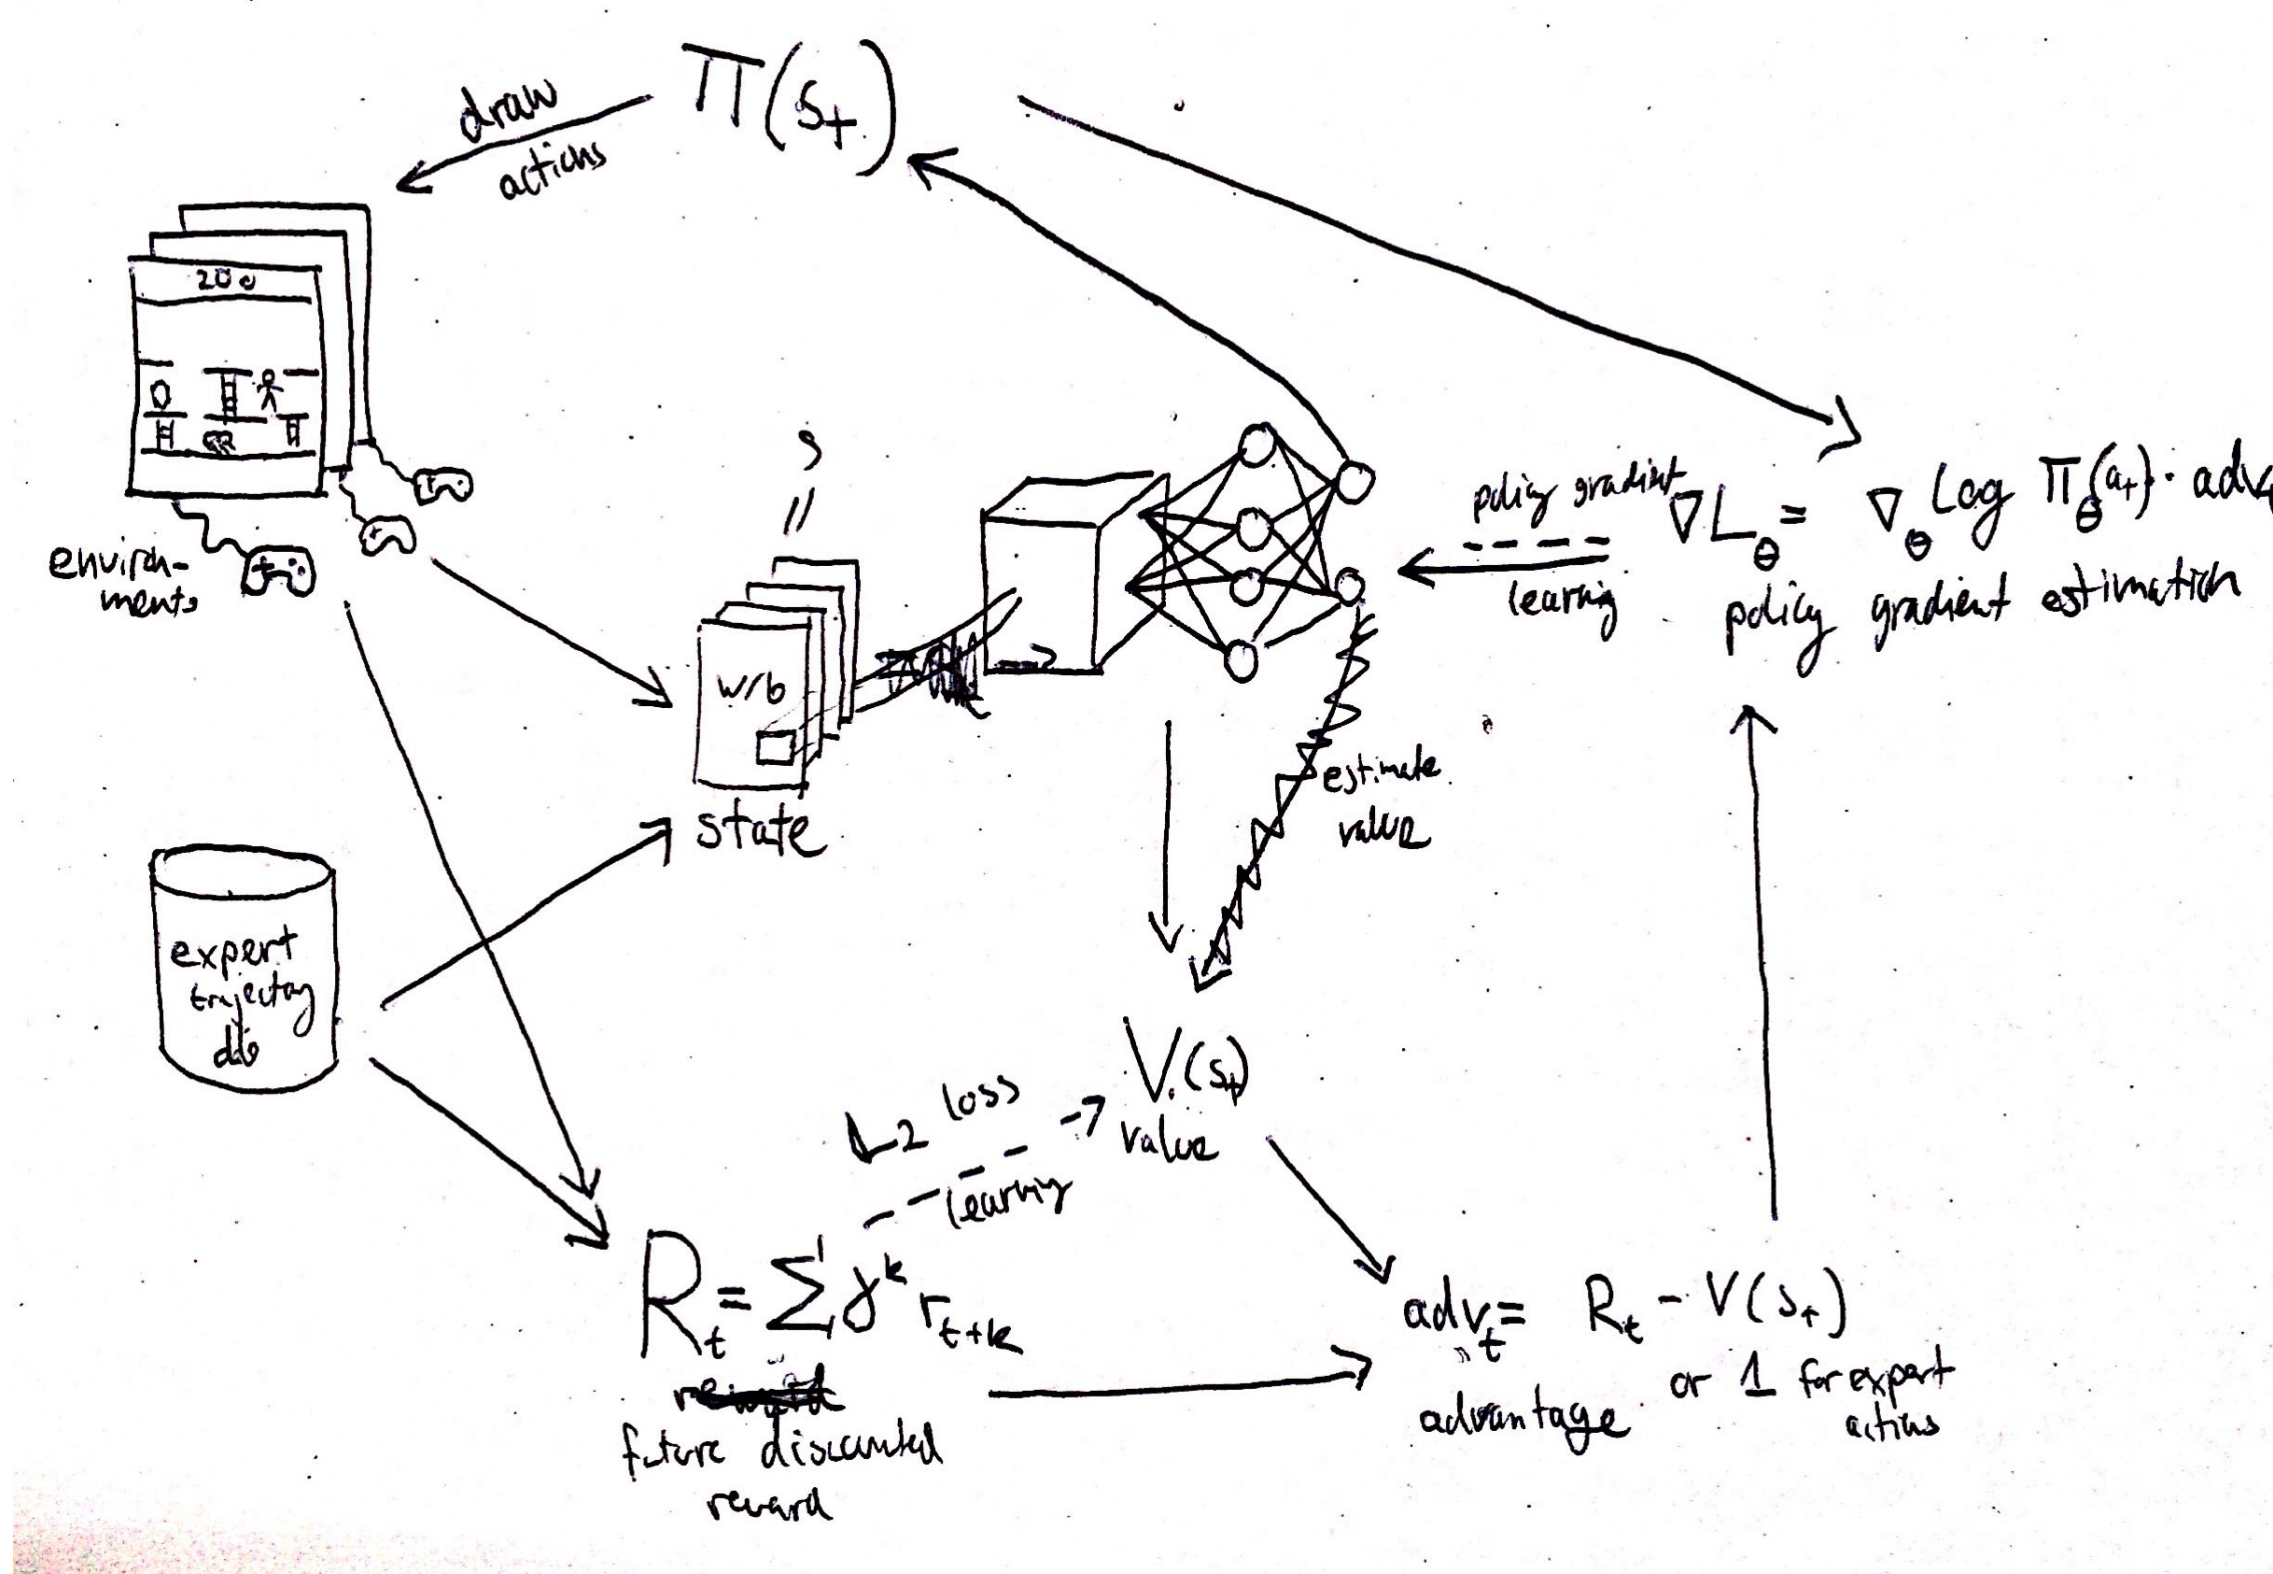 π(s_t)
draw
actions
200
environ-
ments
s
=
w/b
state
policy gradient
learning
∇L_θ = ∇_θ log π_θ(a_t) · adv_t
policy gradient estimation
estimate
value
expert
trajectory
db
V(s_t)
value
L2 loss
learning
R_t = Σ γ^k r_{t+k}
reward
future discounted
reward
adv_t = R_t - V(s_t)
or 1 for expert
actions
advantage